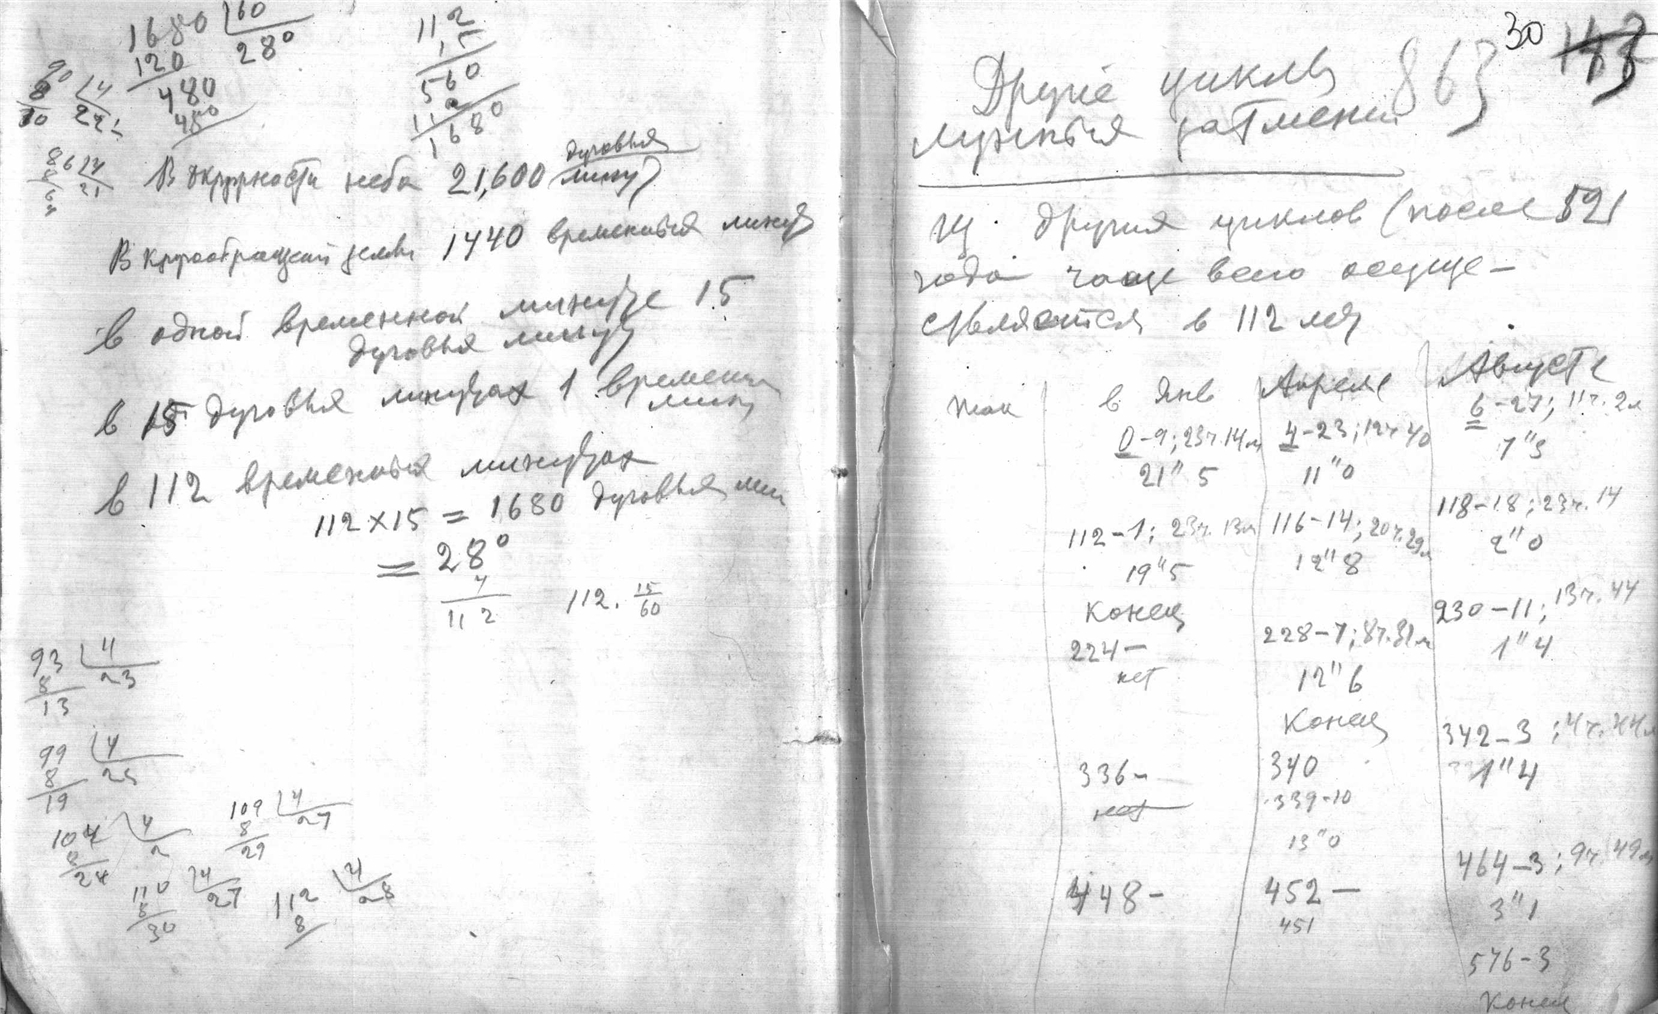 1680 | 60
120 28°
480
480
90 | 4
8 22
10
86 | 4
8 21
6
112
15
560
112
1680
В окружности неба 21,600 дуговых минут
В кругообращении земли 1440 временных минут
в одной временной минуте 15
дуговых минут
в 15 дуговых минутах 1 времени
мин
в 112 временных минутах
112 × 15 = 1680 дуговых мин
= 28°
4
112
112. 15/60
93 | 4
8 23
13
99 | 4
8 25
19
104 | 4
8 2
24
109 | 4
8 27
29
110 | 4
8 27
30
112 | 4
8 28
30 183
863
Другие циклы
лунных затмений
Из других циклов (после 521
года чаще всего осуще-
ствляется в 112 лет
так
в Янв
0-9; 23ч.14м
21" 5
112-1; 23ч.13м
19" 5
конец
224-
нет
336-
нет
448-
Апреле
4-23; 12ч 40
11" 0
116-14; 20ч.29м
12" 8
228-7; 8ч.31м
12" 6
Конец
340
339-10
13" 0
452-
451
Августе
6-27; 11ч.2м
7" 3
118-18; 23ч.14
2" 0
230-11; 13ч.44
1" 4
342-3; 4ч.44м
1" 4
464-3; 9ч.49м
3" 1
576-3
Конец